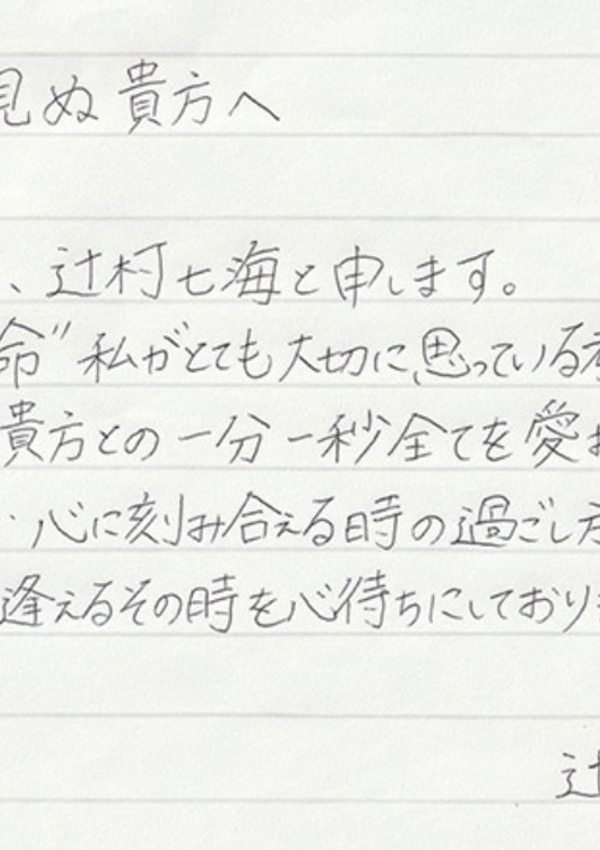 見ぬ貴方へ
、辻村七海と申します。
命”私がとても大切に思っている
貴方との一分一秒全てを愛お
心に刻み合える時の過ごし方
逢えるその時を心待ちにしており
辻